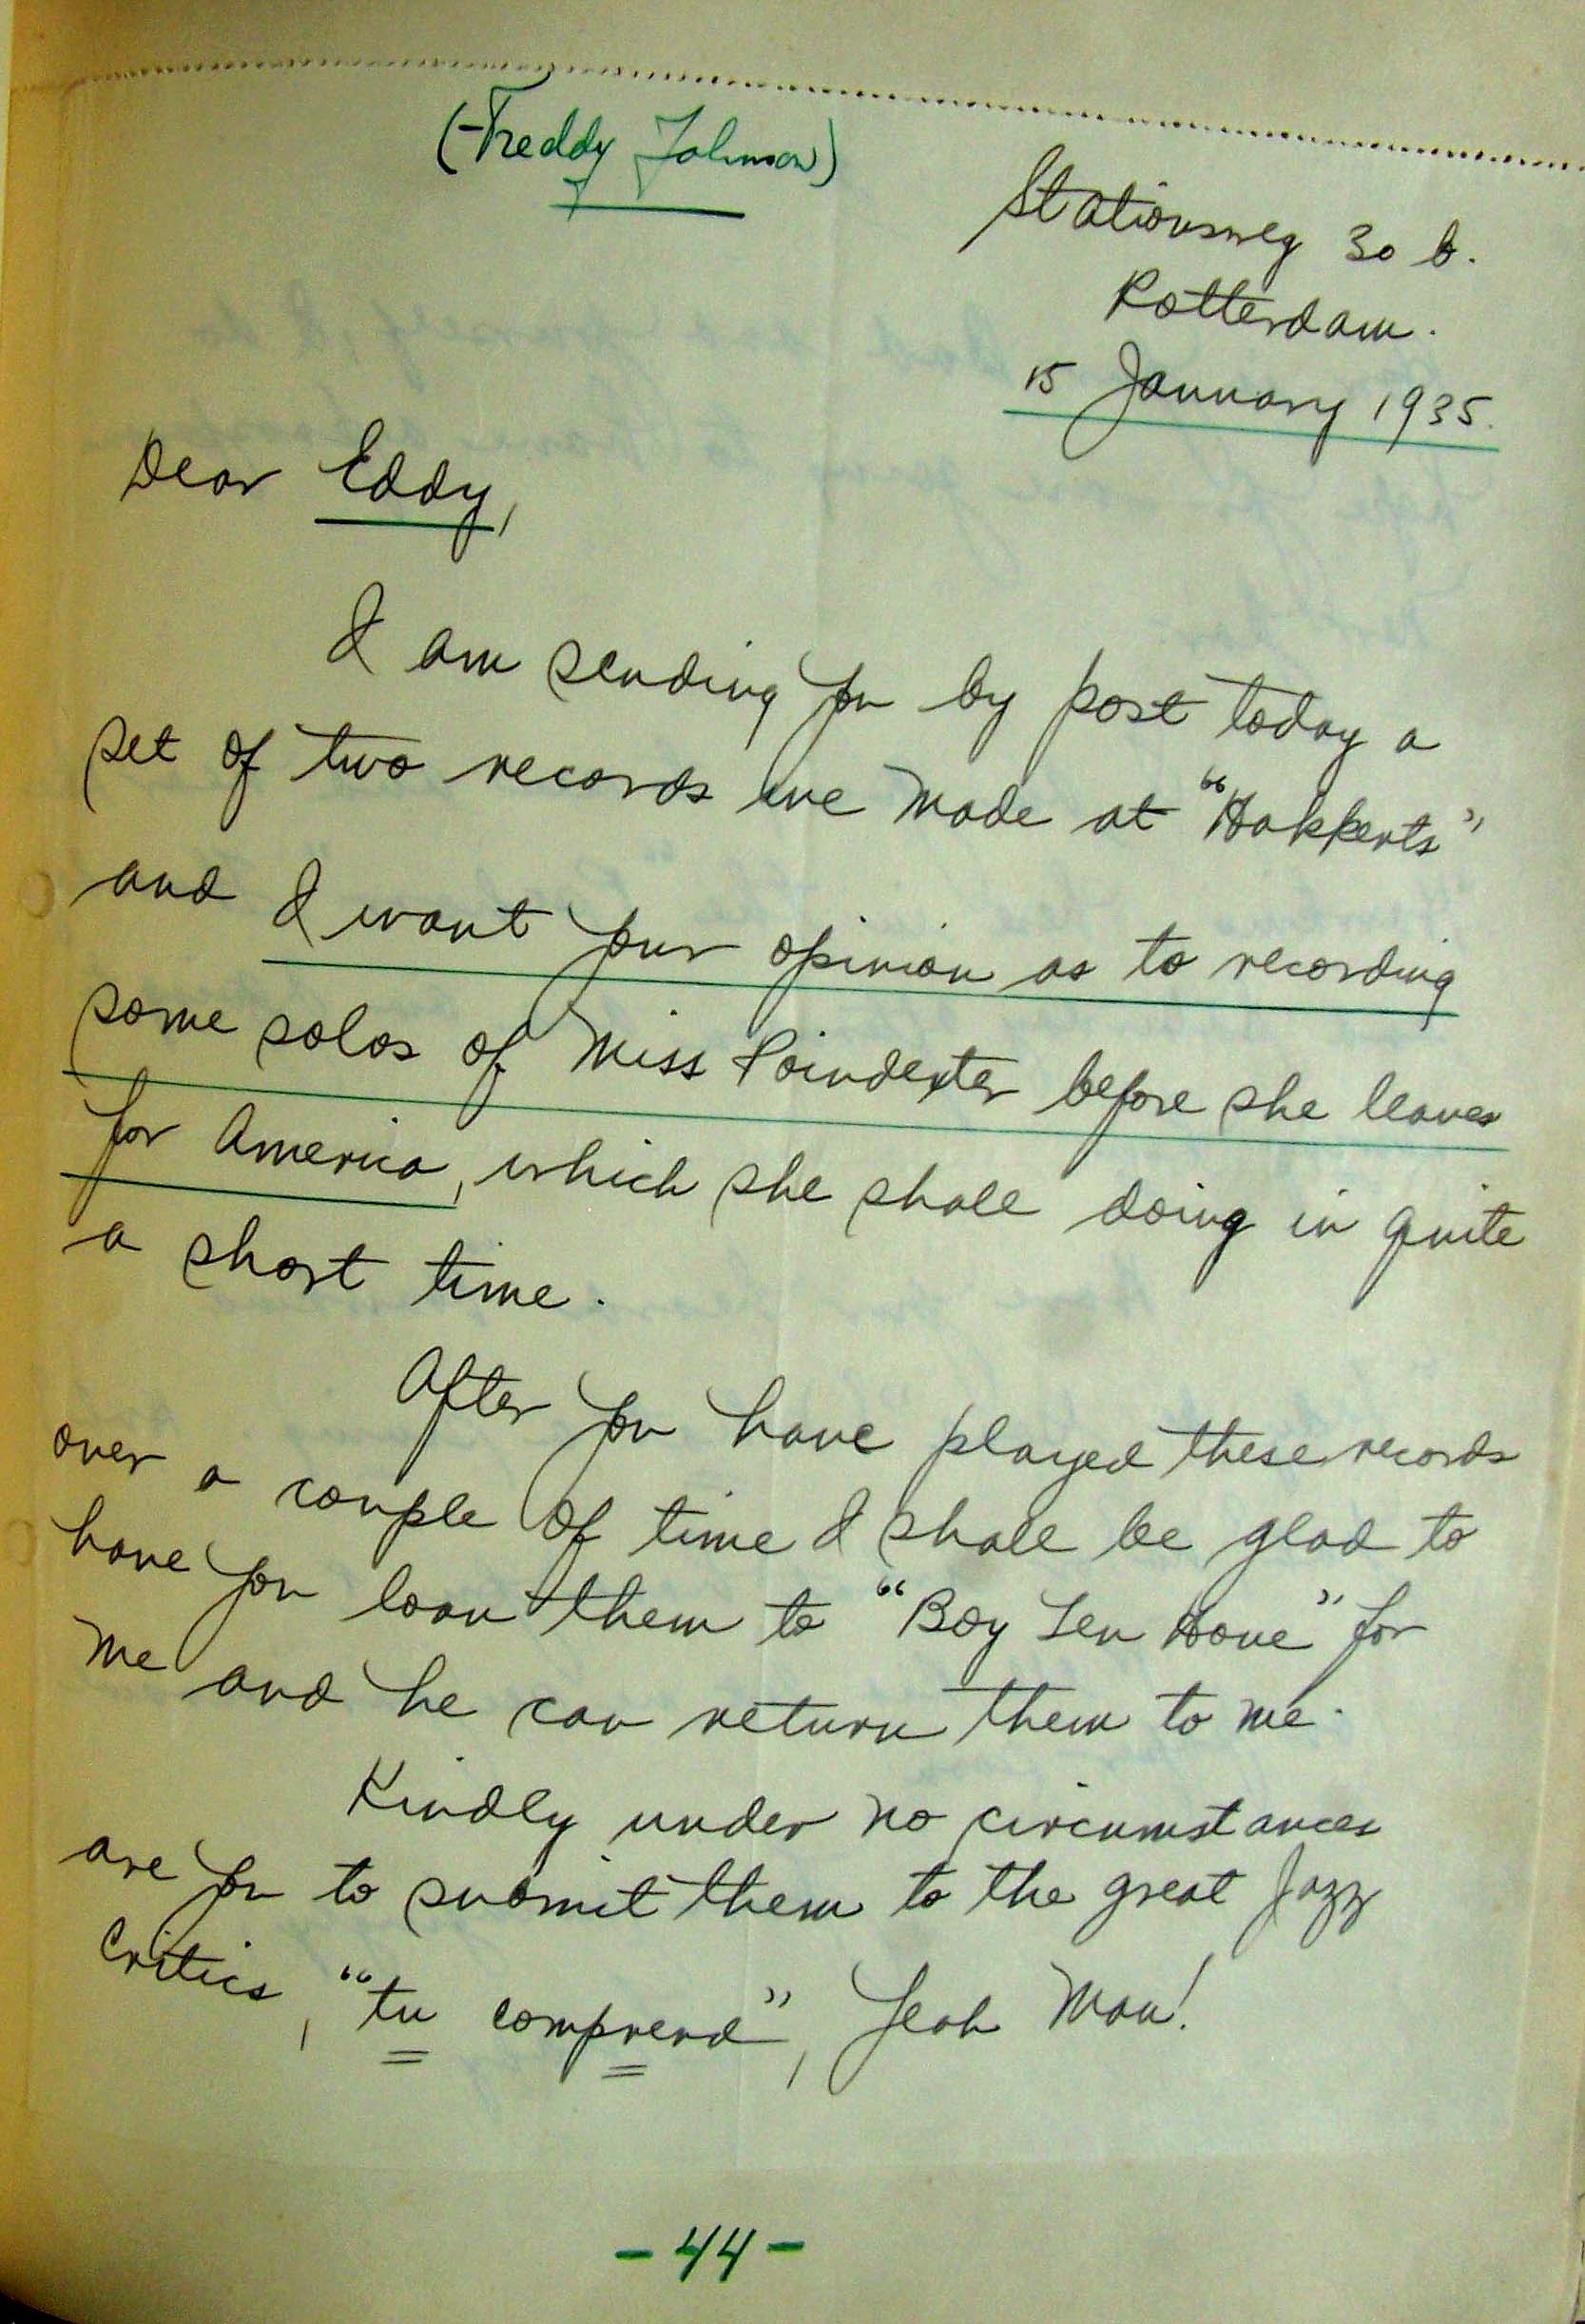 (Freddy Johnson)
Stationsweg 30 b.
Rotterdam.
15 January 1935.
Dear Eddy,
I am sending you by post today a
set of two records we made at "Hakkerts"
and I want your opinion as to recording
some solos of Miss Poindexter before she leaves
for America, which she shall doing in quite
a short time.
After you have played these records
over a couple of time I shall be glad to
have you loan them to "Boy Ten Hove" for
me and he can return them to me.
Kindly under no circumstances
are you to submit them to the great Jazz
Critics, "tu comprend", Yeah Man!
- 44 -